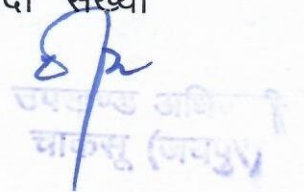 दी संख्या
उपखण्ड अधिकारी
चाकसू (जयपुर)